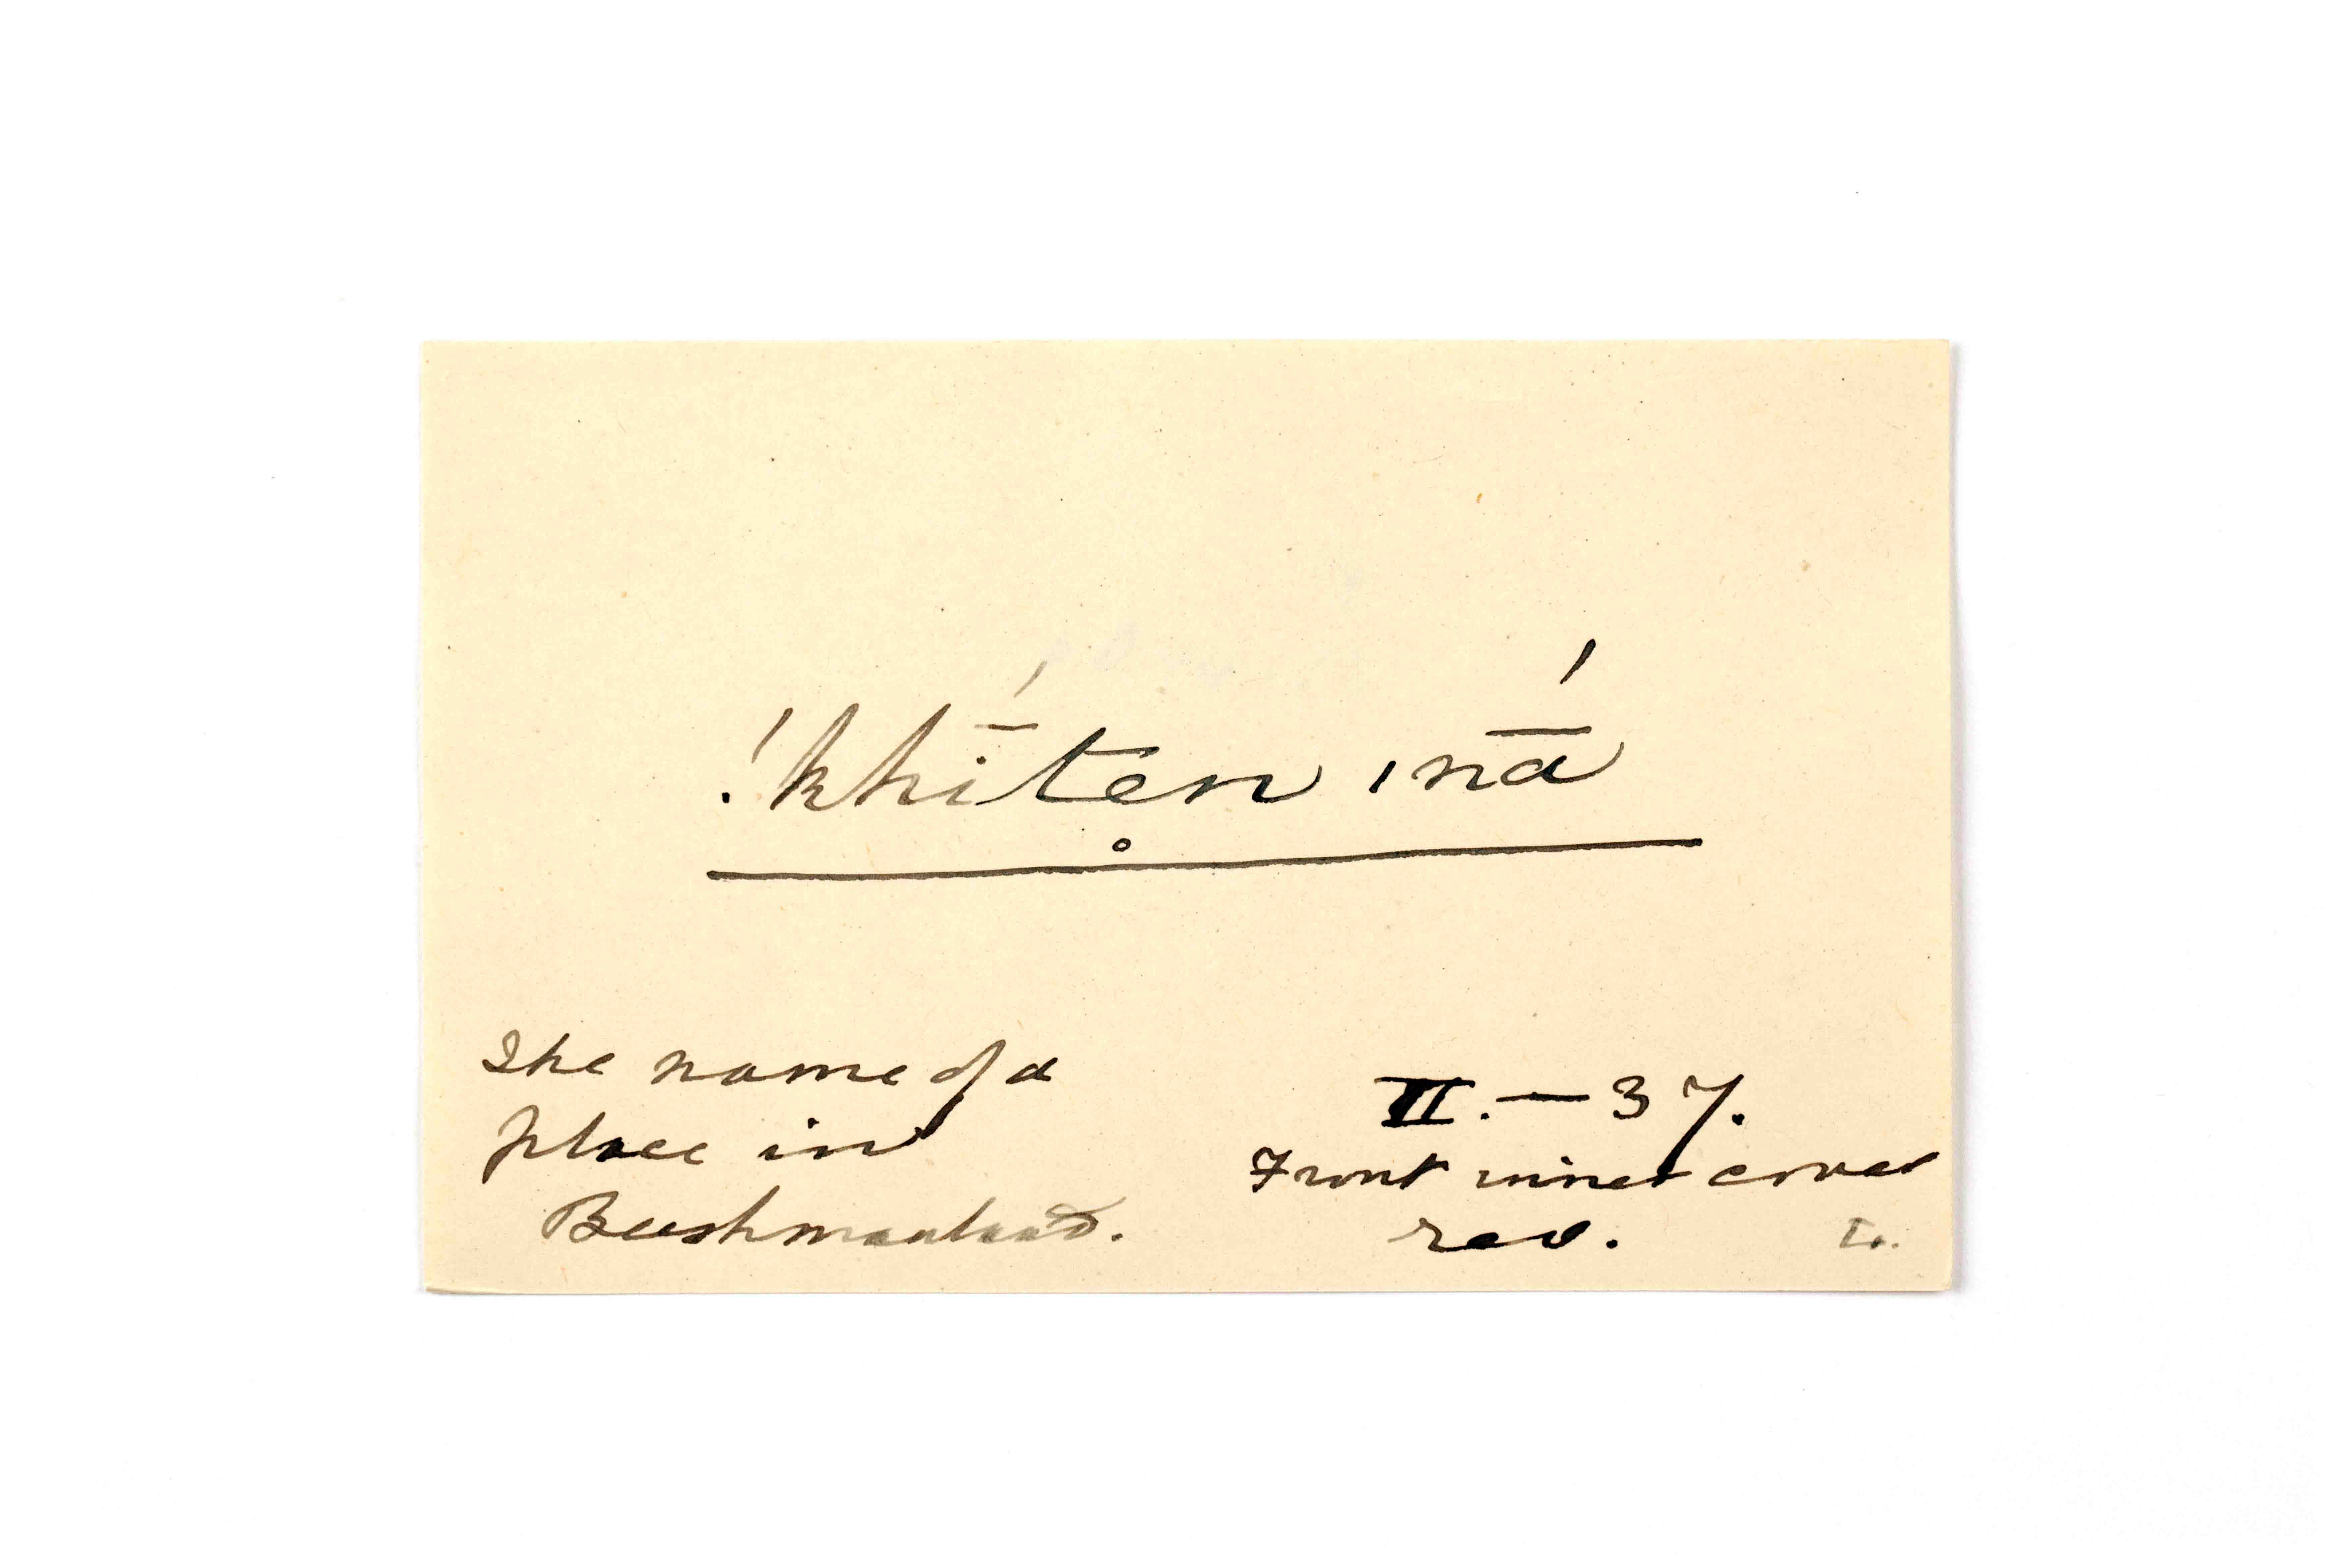 !khī́te̥n ınā́
The name of a
place in
Bushmanland.
II. — 37.
Front inner cover
rev.